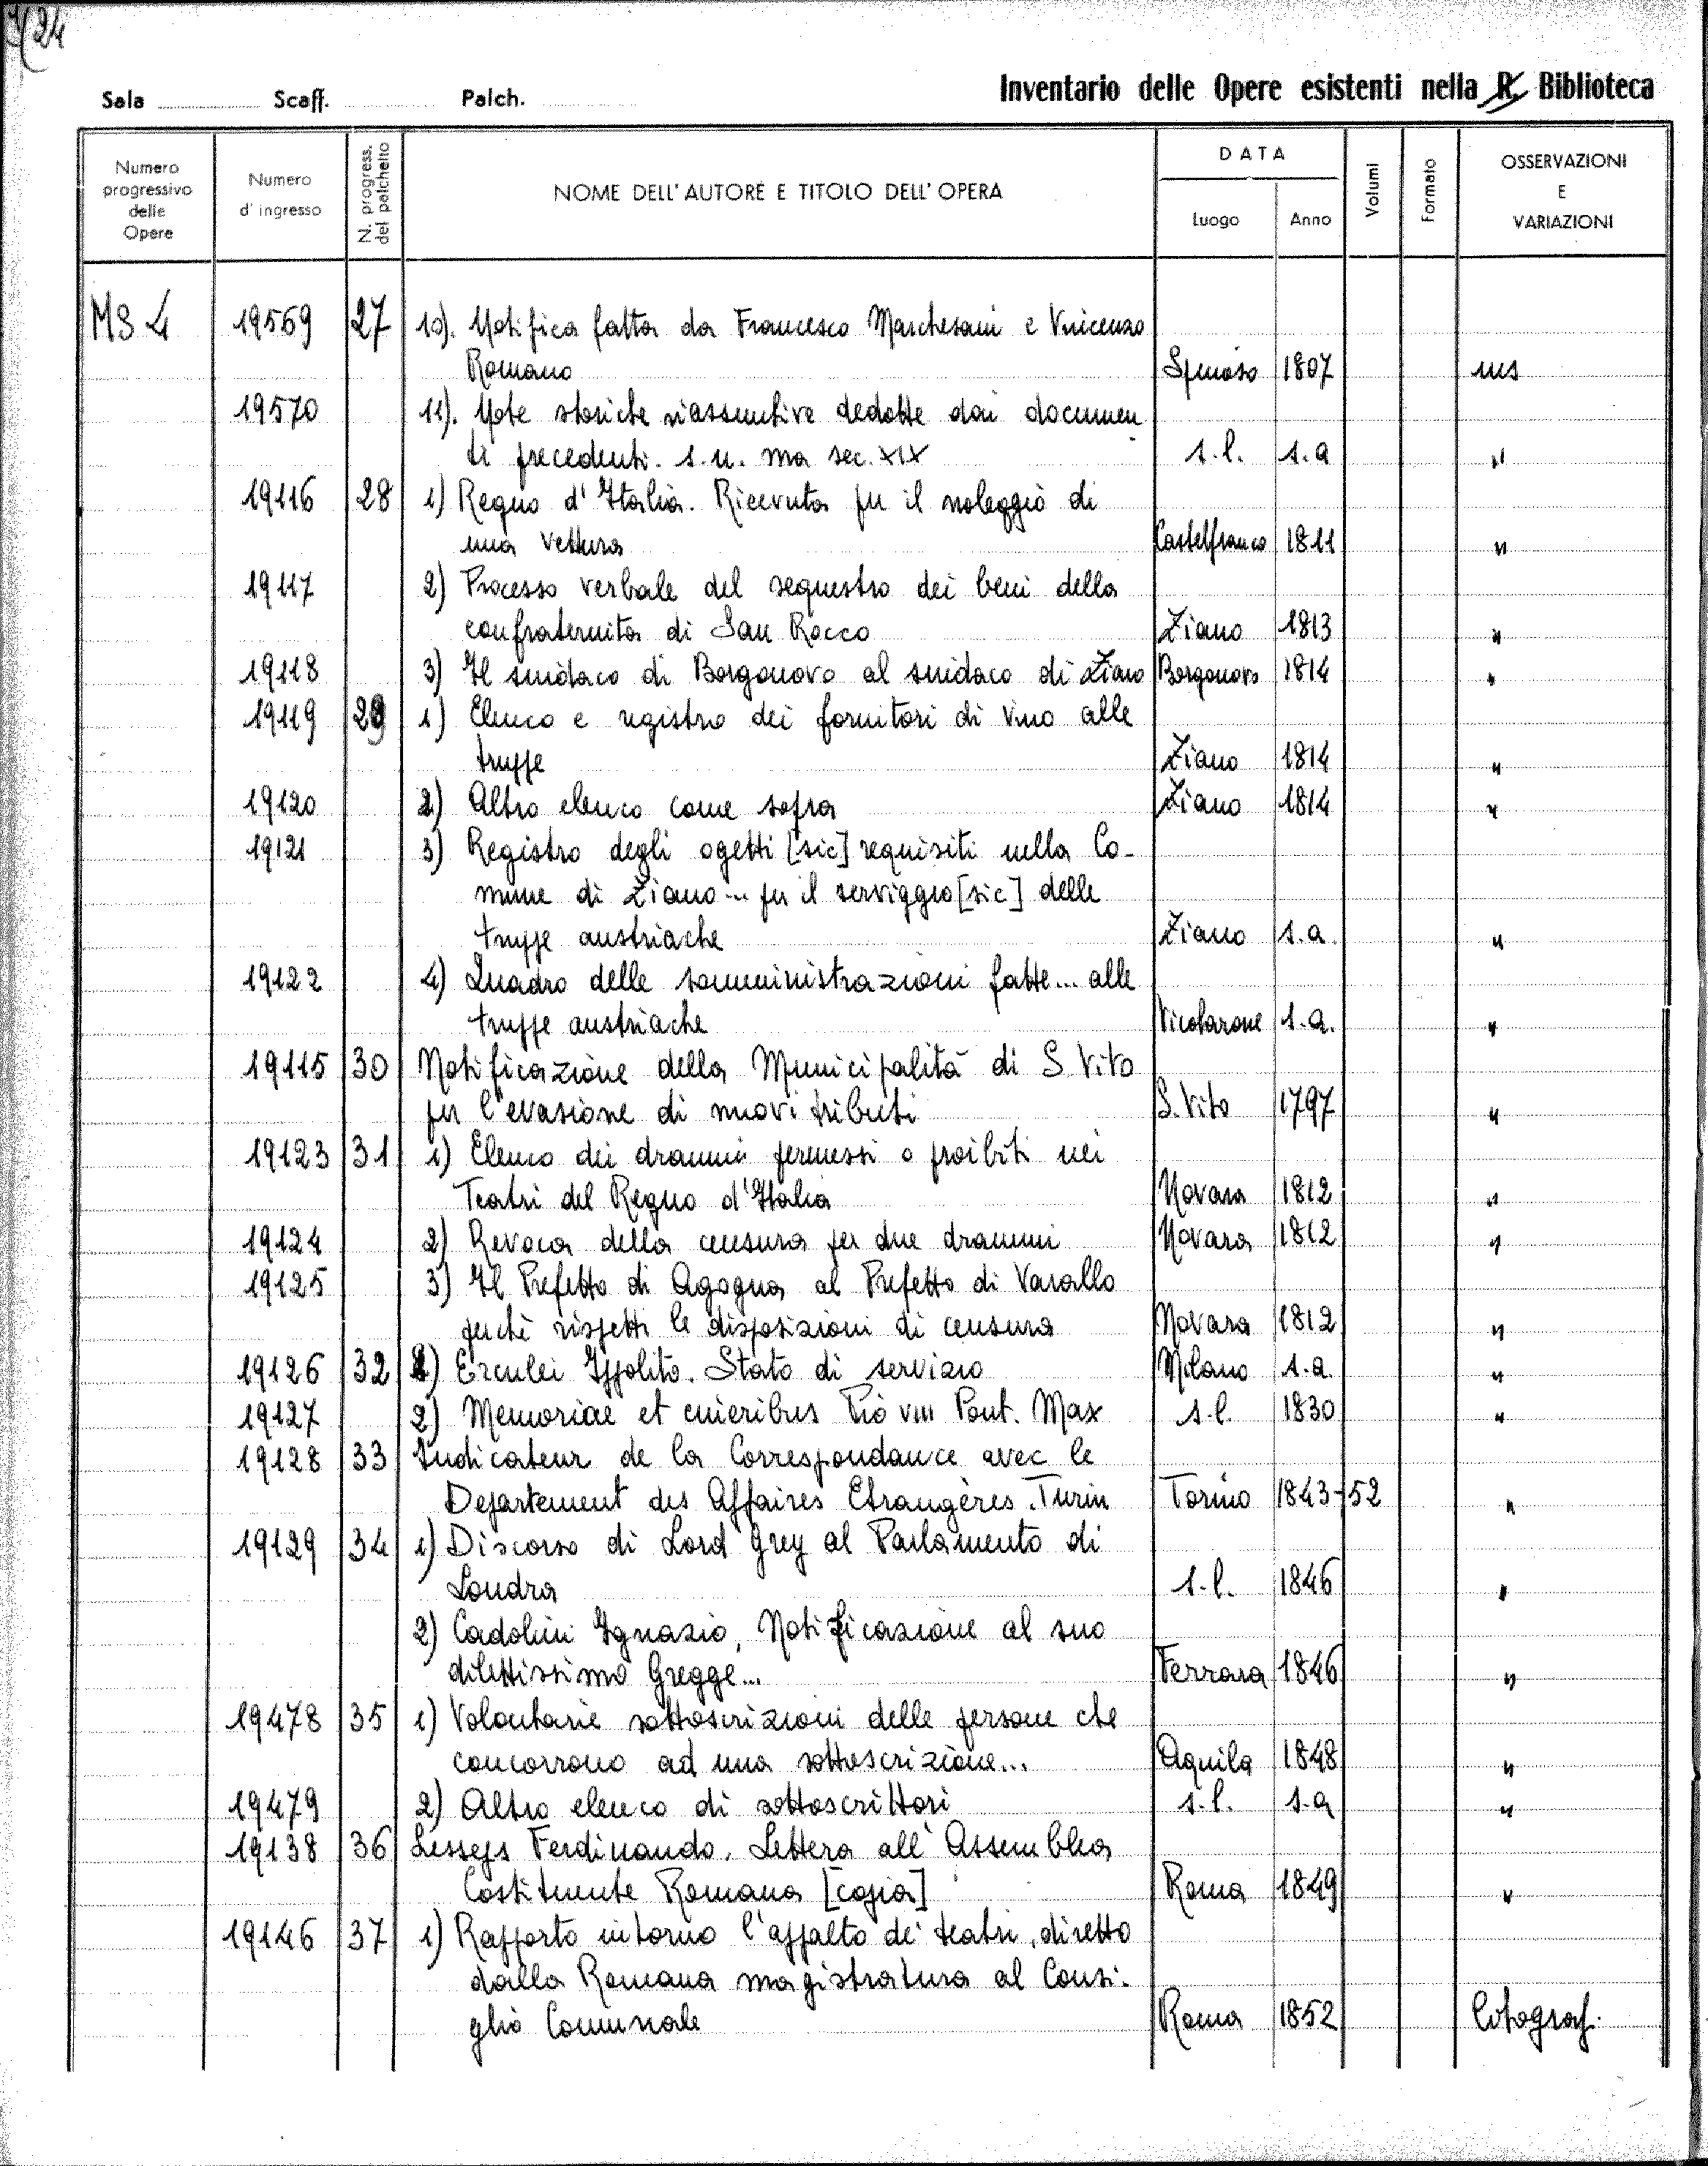 1/24
Sala Scaff. Palch. Inventario delle Opere esistenti nella R. Biblioteca
Numero progressivo delle Opere | Numero d'ingresso | N. progress. del palchetto | NOME DELL'AUTORE E TITOLO DELL'OPERA | DATA | Luogo | Anno | Volumi | Formato | OSSERVAZIONI E VARIAZIONI
MS 4 19569 27 10). Notifica fatta da Francesco Marchesani e Vincenzo
Romano Spinoso 1807 ms
19570 11). Note storiche riassuntive dedotte dai documen
ti precedenti. s.n. ma sec. XIX s.l. s.a "
19116 28 1) Regno d'Italia. Ricevuta per il noleggio di
una vettura Castelfranco 1811 "
19117 2) Processo verbale del sequestro dei beni della
confraternita di San Rocco Ziano 1813 "
19118 3) Il sindaco di Borgonovo al sindaco di Ziano Borgonovo 1814 "
19119 29 1) Elenco e registro dei fornitori di vino alle
truppe Ziano 1814 "
19120 2) Altro elenco come sopra Ziano 1814 "
19121 3) Registro degli ogetti [sic] requisiti nella Co-
mune di Ziano... per il serviggio [sic] delle
truppe austriache Ziano s.a. "
19122 4) Quadro delle somministrazioni fatte... alle
truppe austriache Vicobarone s.a. "
19115 30 Notificazione della Municipalità di S. Vito
per l'evasione di nuovi tributi S. Vito 1797 "
19123 31 1) Elenco dei drammi permessi o proibiti nei
Teatri del Regno d'Italia Novara 1812 "
19124 2) Revoca della censura per due drammi Novara 1812 "
19125 3) Il Prefetto di Agogna al Prefetto di Varallo
perchè rispetti le disposizioni di censura Novara 1812 "
19126 32 1) Erculei Ippolito. Stato di servizio Milano s.a. "
19127 2) Memoriae et cineribus Pio VIII Pont. Max s.l. 1830 "
19128 33 Indicateur de la Correspondance avec le
Departement des Affaires Etrangères. Turin Torino 1843-52 "
19129 34 1) Discorso di Lord Grey al Parlamento di
Londra s.l. 1846 "
2) Cadolini Ignazio, Notificazione al suo
dilettissimo Gregge... Ferrara 1846 "
19478 35 1) Volontarie sottoscrizioni delle persone che
concorrono ad una sottoscrizione... Aquila 1848 "
19479 2) Altro elenco di sottoscrittori s.l. s.a "
19138 36 Lesseps Ferdinando. Lettera all'Assemblea
Costituente Romana [copia] Roma 1849 "
19146 37 1) Rapporto intorno l'appalto de' teatri, diretto
dalla Romana magistratura al Consi-
glio Comunale Roma 1852 Litograf.